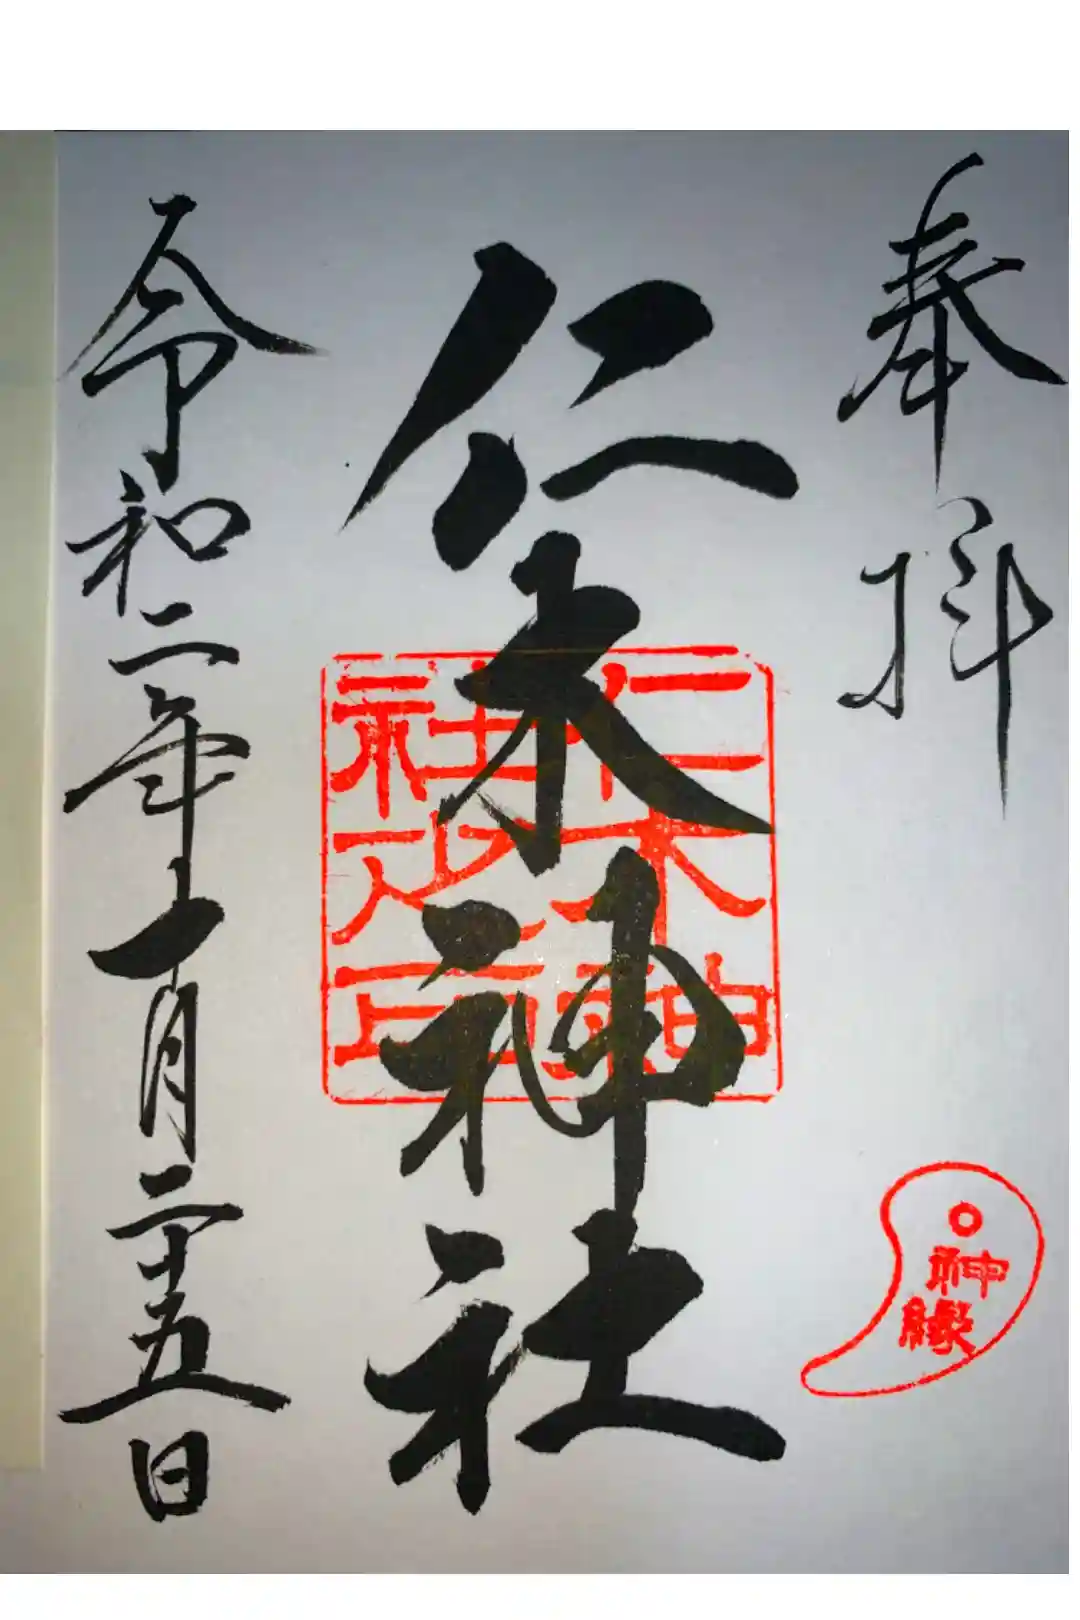 奉拝
神縁
仁木神社
仁木神
社之印
令和二年十月二十五日